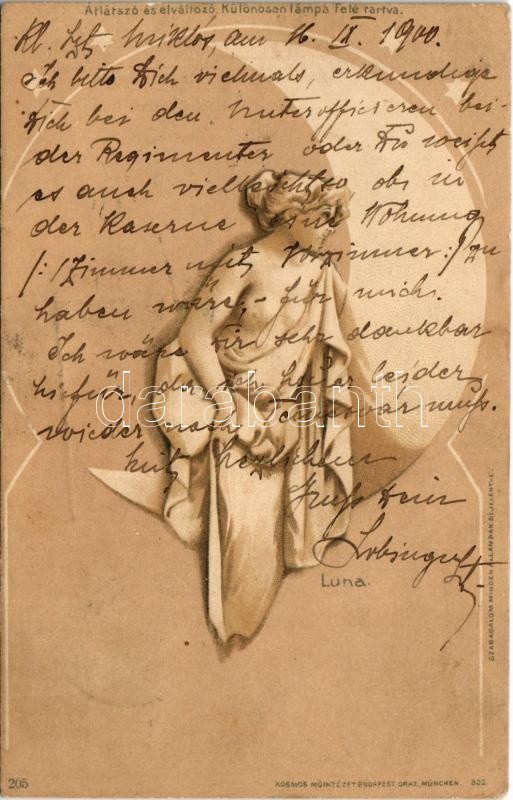 Átlátszó és elváltozó, Különösen lámpa felé tartva.
Kl. Szt. Miklós, am 16. IX. 1900.
Ich bitte Dich vielmals, erkundige
Dich bei den Unterofficieren bei-
der Regimenter oder Du weißt
es auch vielleicht so ob in
der Kaserne eine Wohnung
/:/Zimmer mit Vorzimmer:/ zu
haben wäre, - für mich.
Ich wäre Dir sehr dankbar
hiefür, da ich leider
wieder nach Temesvar muß.
Mit herzlichem
Gruß Dein
darabanth
Luna.
SZABADALOM MINDEN ÁLLAMBAN BEJELENTVE.
205
KOSMOS MŰINTÉZET BUDAPEST, GRAZ, MÜNCHEN. 502.